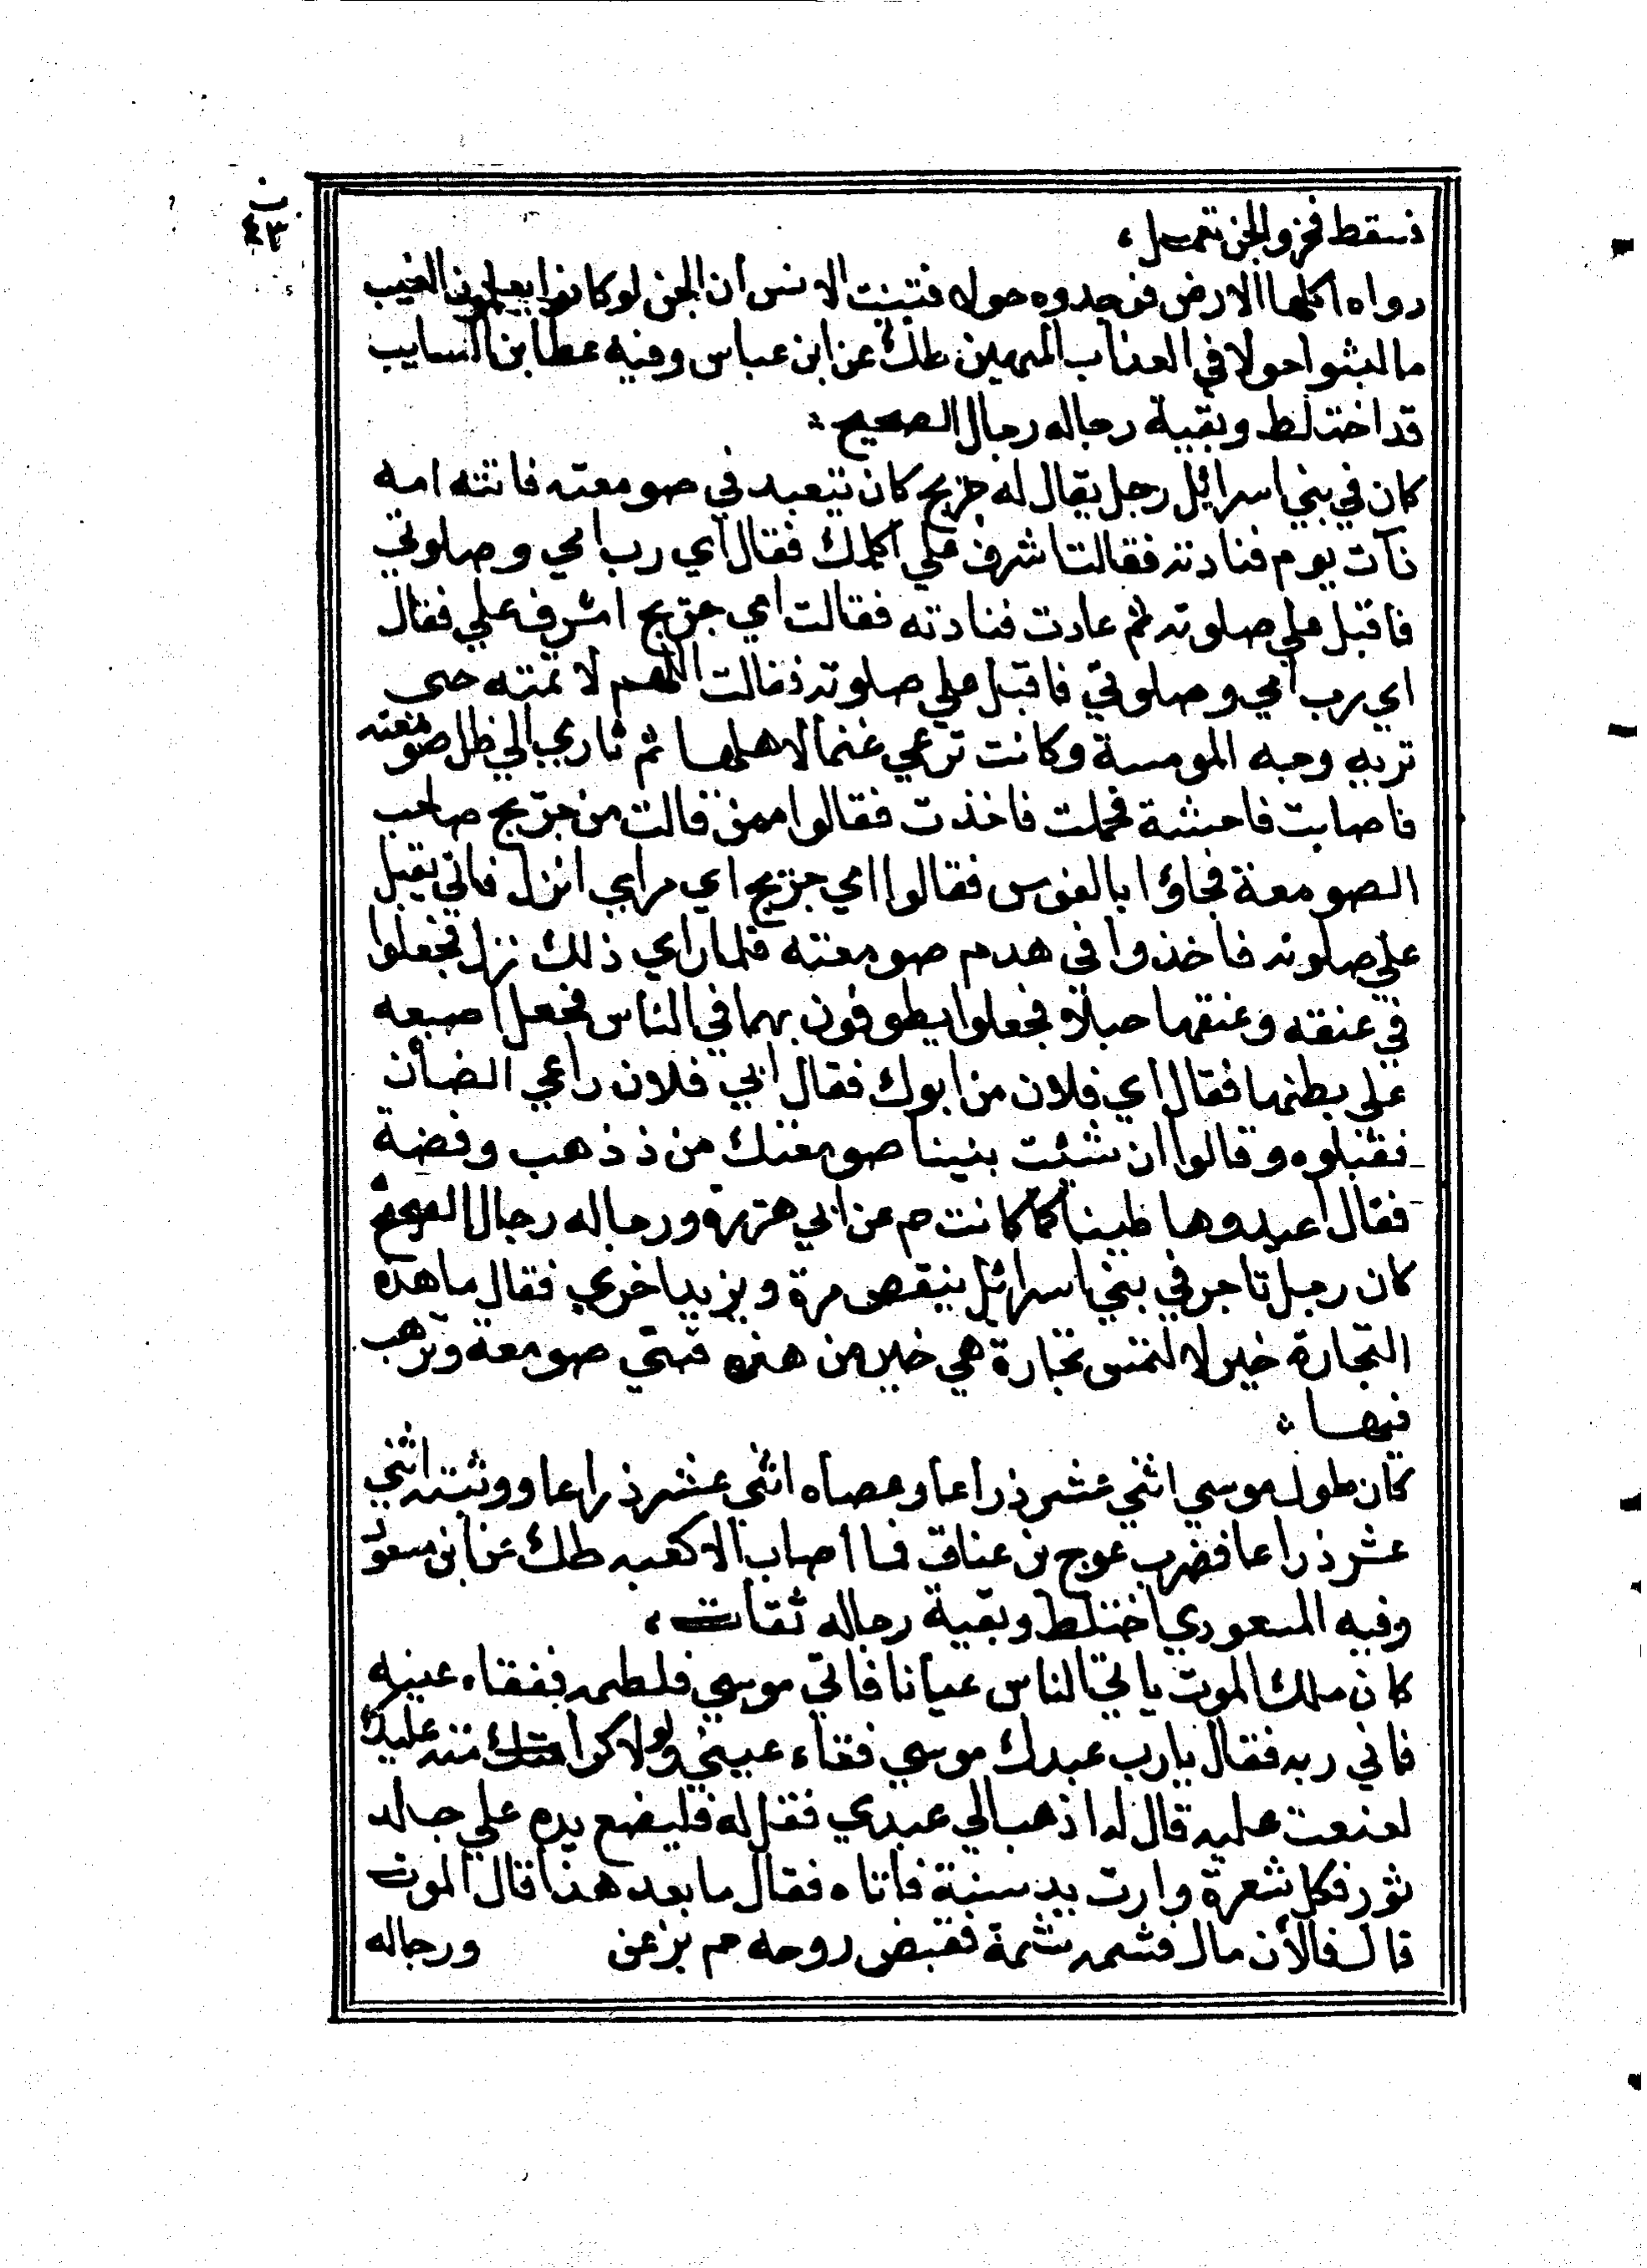 ن
٤٣
فسقط فخر والجن تعمل،
رواه اكلها الارض فوجدوه حوله فتبينت الانس ان الجن لو كانوا يعلمون الغيب
ما لبثوا حولا في العذاب المهين طك عن ابن عباس وفيه عطا بن السايب
قد اختلط وبقية رجاله رجال الصحيح
كان في بني اسرائل رجل يقال له جريج كان يتعبد في صومعته فاتته امه
ذات يوم فنادته فقالت اشرف علي اكلمك فقال اي رب امي وصلوتي
فاقبل علي صلوته ثم عادت فنادته فقالت اي جريج اشرف علي فقال
اي رب امي وصلوتي فاقبل علي صلوته فقالت اللهم لا تمته حتى
تريه وجه المومسة وكانت ترعي غنما لاهلها ثم تاوي الي ظل صومعته
فاصابت فاحشة فحملت فاخذت فقالوا ممن قالت من جريج صاحب
الصومعة فجاؤا بالفوس فقالوا اي جريج اي مراي انزل فاتي يقبل
علي صلوته فاخذوا في هدم صومعته فلما راي ذلك نزل فجعلوا
في عنقه وعنقها حبلا فجعلوا يطوفون بهما في الناس فجعل اصبعه
علي بطنها فقال اي فلان من ابوك فقال ابي فلان راعي الضأن
فقبلوه وقالوا ان شئت بنينا صومعتك من ذ ذهب وفضة
فقال اعيدوها طينا كما كانت حم عن ابي هريرة ورجاله رجال الصحيح
كان رجل تاجر في بني اسرائل ينقص مرة ويزيد اخري فقال ما هذه
التجارة خير لالتمس تجارة هي خير من هذه فبني صومعة وترهب
فيها
كان طول موسي اثني عشر ذراعا وعصاه اثني عشر ذراعا ووثبته اثني
عشر ذراعا فضرب عوج بن عناق فما اصاب الا كعبه طك عن ابن مسعود
وفيه المسعودي اختلط وبقية رجاله ثقات،
كان ملك الموت ياتي الناس عيانا فاتي موسي فلطمه ففقاء عينيه
فاتي ربه فقال يارب عبدك موسي فقاء عيني ولولا كرامتك منه عليك
لعنعت عليه قال له اذهب الي عبدي فقل له فليضع يده علي جلد
ثور فكل شعرة وارت يد سنة فاتاه فقال ما بعد هذا قال الموت
قال فالأن مال فشمه شمة فقبض روحه حم بز عن ورجاله